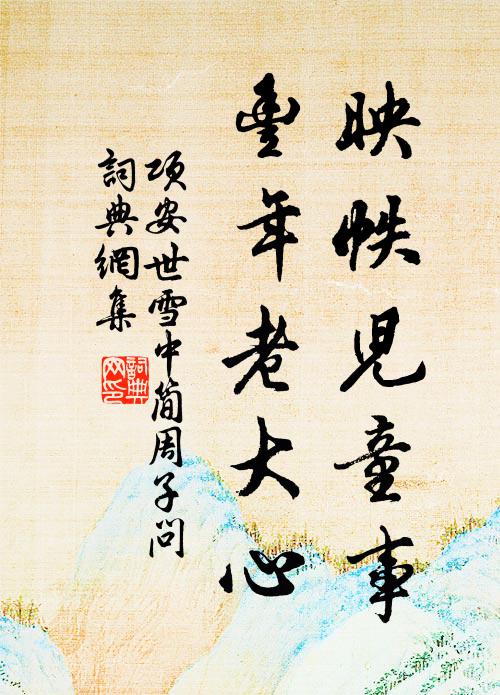 映帙兒童事
豐年老大心
項安世雪中簡周子問
詞典網集
詞典网印